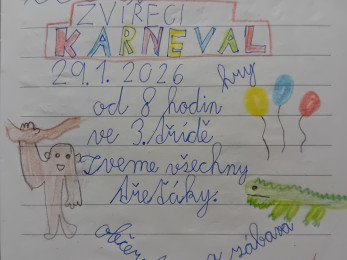 ZVÍŘECÍ
KARNEVAL
29.1. 2026 hry
od 8 hodin
ve 3. třídě
Zveme všechny
třeťáky.
a zábava